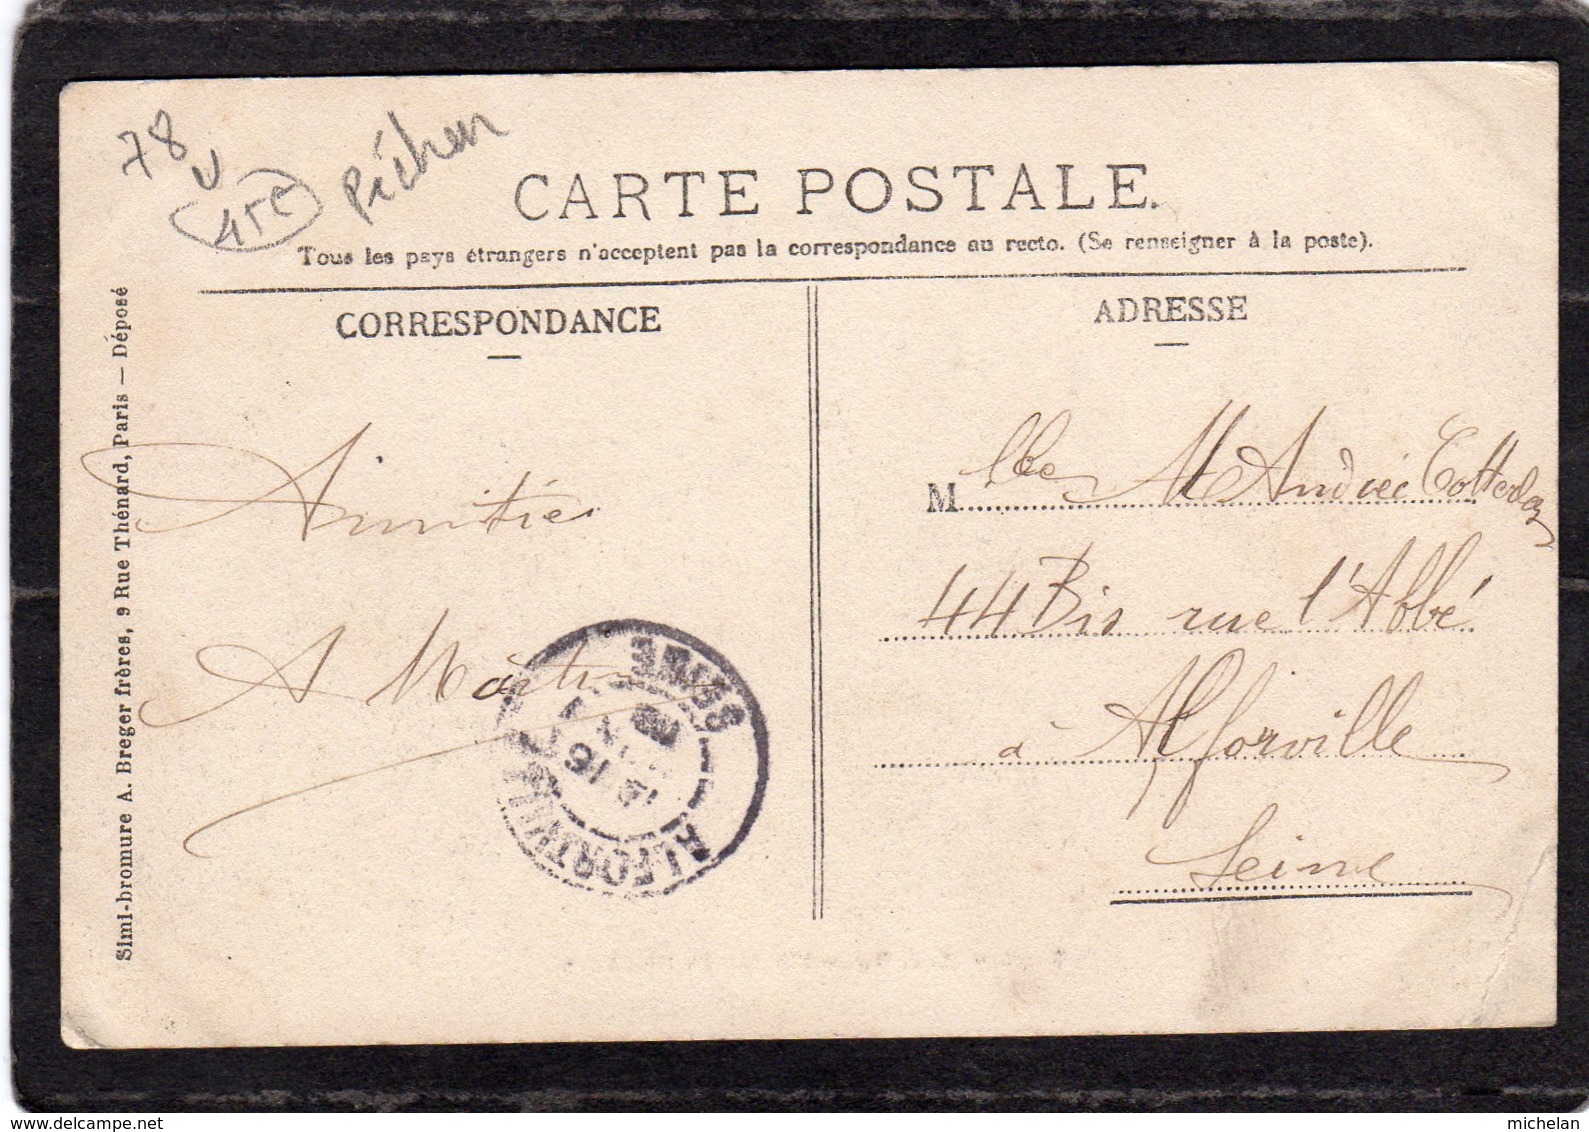 78
Pêcheur
CARTE POSTALE.
Tous les pays étrangers n'acceptent pas la correspondance au recto. (Se renseigner à la poste).
CORRESPONDANCE
Amitiés
A Martin
ADRESSE
Mlles M et Andrée
44 Bis rue l'Abbé
à Alforville
Seine
ALFORTVILLE
SEINE
Simi-bromure A. Breger frères, 9 Rue Thénard, Paris — Déposé
delcampe.net
michelan